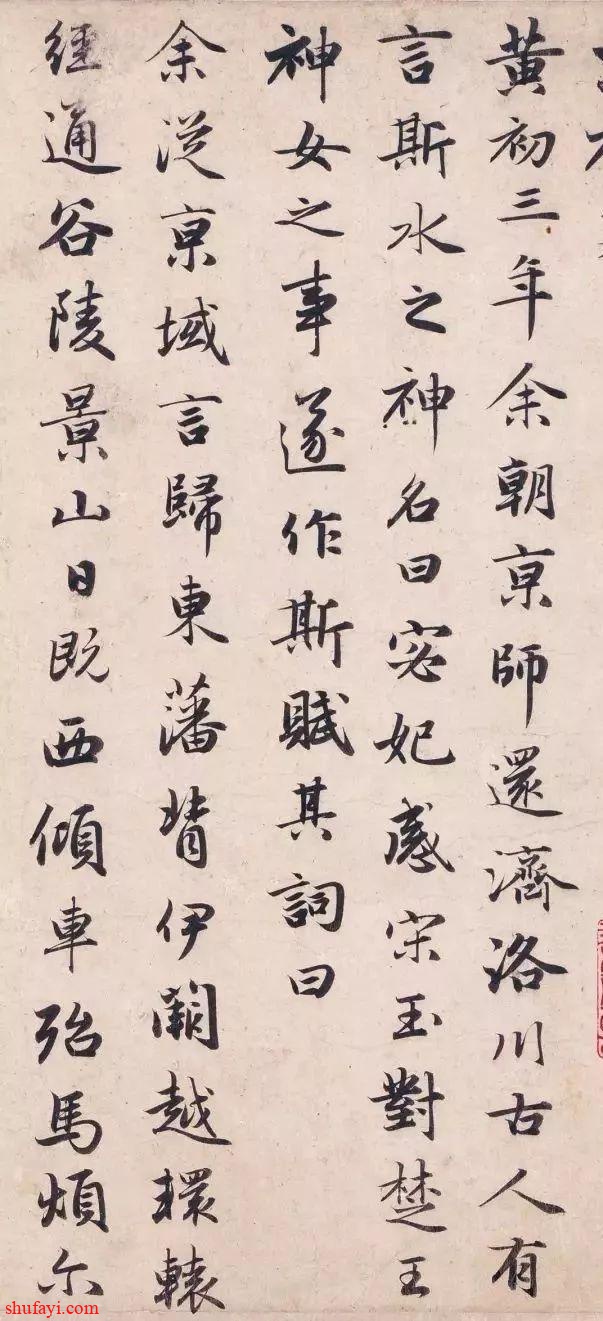 黄初三年余朝京師還濟洛川古人有
言斯水之神名曰宓妃感宋玉對楚王
神女之事遂作斯賦其詞曰
余從京域言歸東藩背伊闕越轘轅
經通谷陵景山日既西傾車殆馬煩尔
shufayi.com